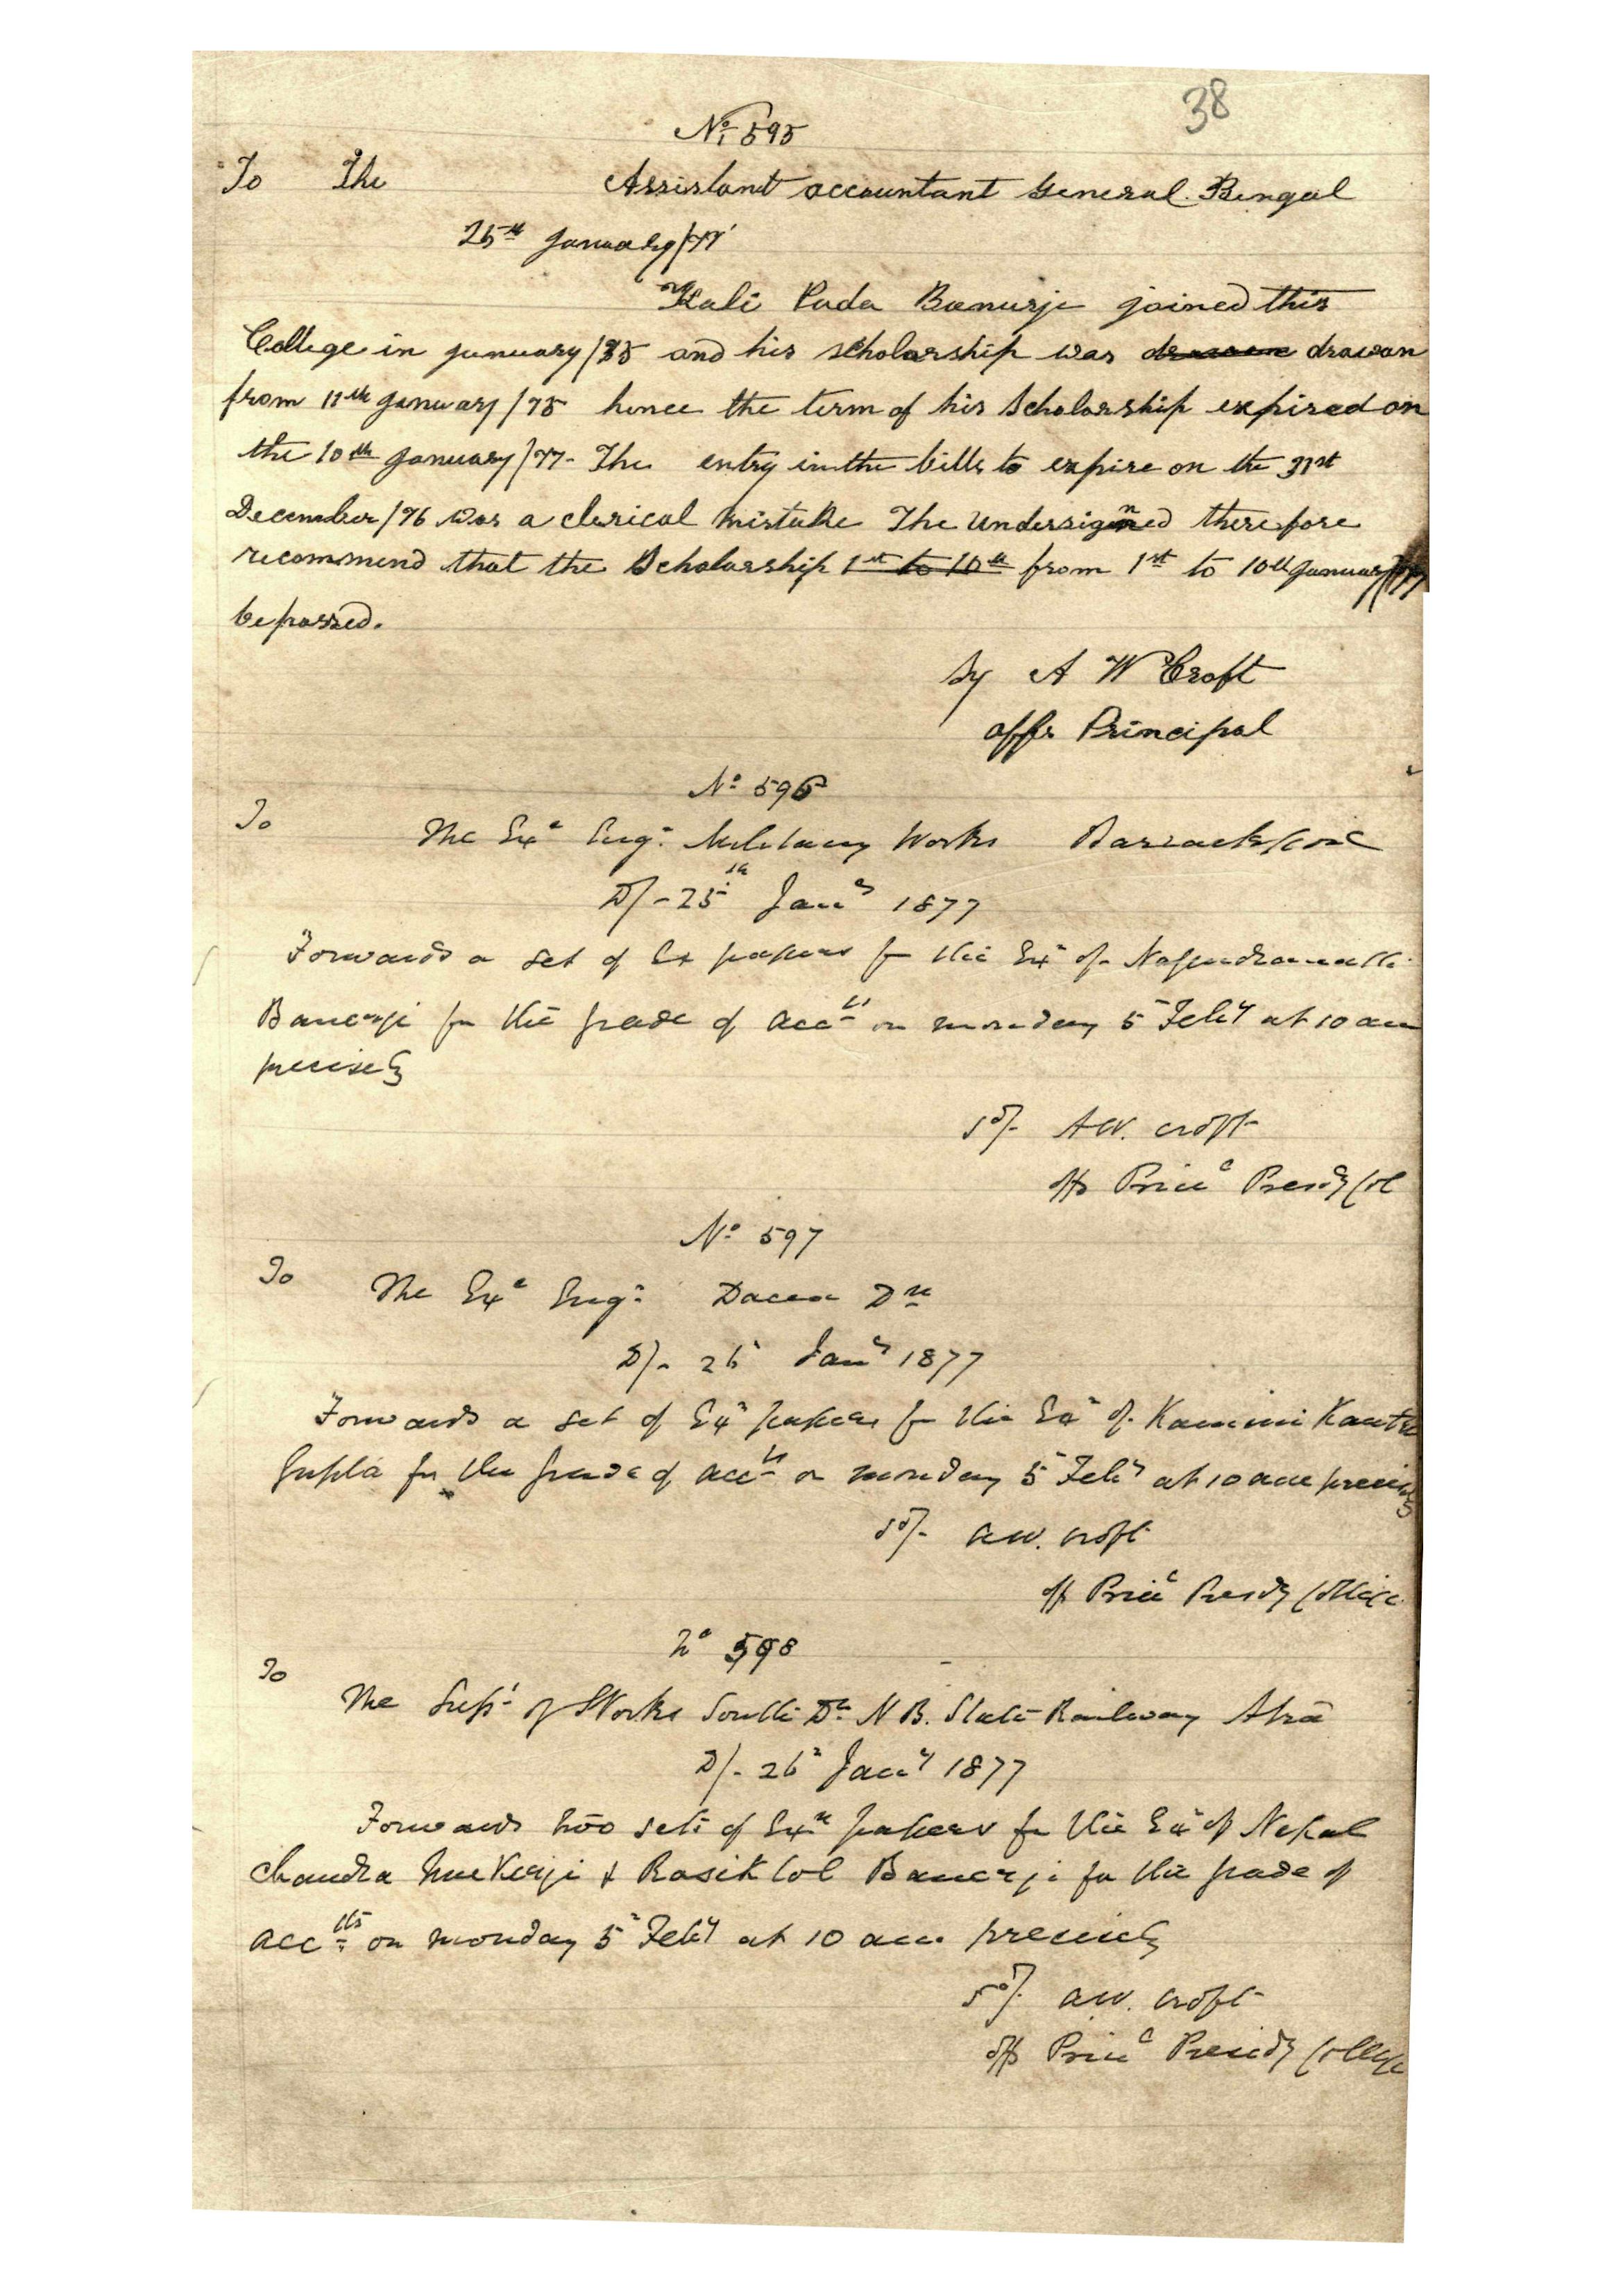 38
No 595
To The Assistant accountant General. Bengal
25th January/77
Kali Pada Banurje joined this
College in January/75 and his scholarship was drawan
from 11th January/75 hence the term of his Scholarship expired on
the 10th January/77- The entry in the bills to expire on the 31st
December/76 was a clerical mistake The Undersigned therefore
recommend that the Scholarship 1st to 10th from 1st to 10th January/77
be passed.
Sy A W Croft
offs Principal
No 596
To
The Exe Engr Military Works Barrackpore
D/- 25th Jany 1877
Forwards a set of Ex papers for the Exn of Nagendranath
Banerji for the grade of Accts on monday 5 Feby at 10 am
precisely
Sd/- A W. Croft
offs Princ Presdy Col
No 597
To
The Exe Engr Dacca Dn
D/- 26 Jany 1877
Forwards a set of Exn papers for the Exn of Kamini Kanta
Gupta for the grade of accts on monday 5 Feby at 10 am precisely
Sd/- A W. Croft
off Princ Presdy College
No 598
To
The Supt of Works South Dn N B. State Railway Atrai
D/- 26 Jany 1877
Forwards two sets of Exn papers for the Exn of Nepal
Chandra Mukerji & Rasik Lol Banerji for the grade of
accts on monday 5 Feby at 10 am precisely
Sd/- A W. Croft
offs Princ Presidy College